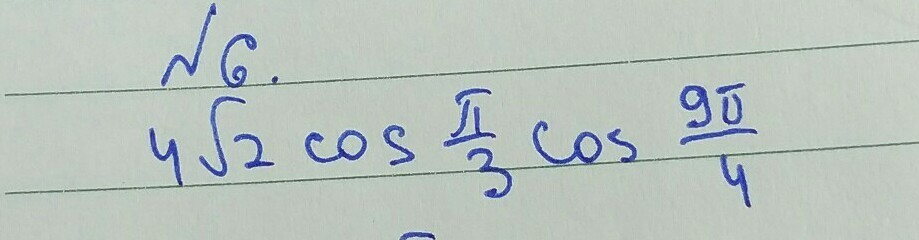 № 6.
4√2 cos π/3 cos 9π/4